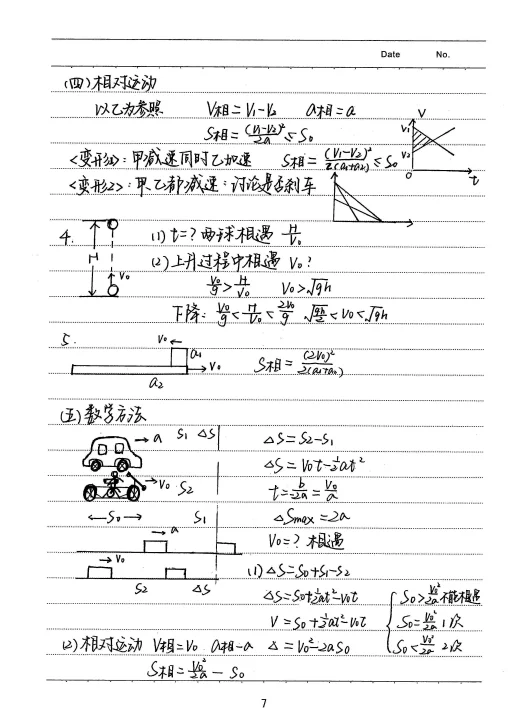 Date No.
(四)相对运动
以乙为参照 V相=V₁-V₂ a相=a
S相=(V₁-V₂)²/2a≤S₀
V
V₁
V₂
0
t
<变形1>:甲减速同时乙加速 S相=(V₁-V₂)²/2(a₁+a₂)≤S₀
<变形2>:甲.乙都减速:讨论是否刹车
4. H V₀
(1) t=? 两球相遇 H/V₀
(2)上升过程中相遇 V₀?
V₀/g>H/V₀ V₀>√gh
下降: V₀/g<H/V₀<2V₀/g √(gh/2)<V₀<√gh
5. V₀ a₁ V₀ a₂
S相=(2V₀)²/2(a₁+a₂)
(五)数学方法
a S₁ ΔS ΔS=S₂-S₁
ΔS=V₀t-½at²
V₀ S₂ t=b/-2a=V₀/a
S₀ S₁ ΔSmax=2a
a V₀=? 相遇
V₀ (1) ΔS=S₀+S₁-S₂
S₂ ΔS ΔS=S₀+½at²-V₀t
V=S₀+½at²-V₀t
S₀>V₀²/2a 不能相遇
S₀=V₀²/2a 1次
S₀<V₀²/2a 2次
(2)相对运动 V相=V₀ a相-a Δ=V₀²-2aS₀
S相=V₀²/2a-S₀
7